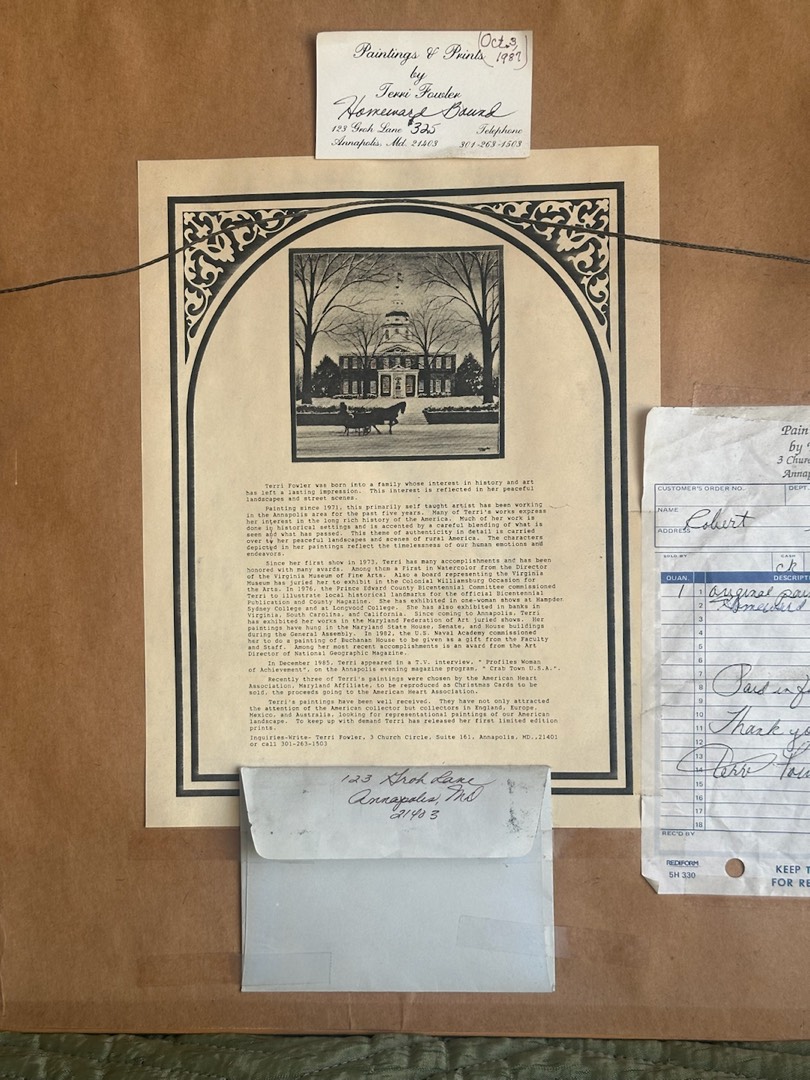 Paintings & Prints
(Oct. 3, 1987)
by
Terri Fowler
Homeward Bound
$325
123 Groh Lane Telephone
Annapolis, Md. 21403 301-263-1503
Terri Fowler was born into a family whose interest in history and art
has left a lasting impression. This interest is reflected in her peaceful
landscapes and street scenes.
Painting since 1971, this primarily self taught artist has been working
in the Annapolis area for the past five years. Many of Terri's works express
her interest in the long rich history of the America. Much of her work is
done in historical settings and is accented by a careful blending of what is
seen and what has passed. This theme of authenticity in detail is carried
over to her peaceful landscapes and scenes of rural America. The characters
depicted in her paintings reflect the timelessness of our human emotions and
endeavors.
Since her first show in 1973, Terri has many accomplishments and has been
honored with many awards. Among them a First in Watercolor from the Director
of the Virginia Museum of Fine Arts. Also a board representing the Virginia
Museum has juried her to exhibit in the Colonial Williamsburg Occasion for
the Arts. In 1976, the Prince Edward County Bicentennial Committee commissioned
Terri to illustrate local historical landmarks for the official Bicentennial
Publication and County Magazine. She has exhibited in one-woman shows at Hampden
Sydney College and at Longwood College. She has also exhibited in banks in
Virginia, South Carolina, and California. Since coming to Annapolis, Terri
has exhibited her works in the Maryland Federation of Art juried shows. Her
paintings have hung in the Maryland State House, Senate, and House buildings
during the General Assembly. In 1982, the U.S. Naval Academy commissioned
her to do a painting of Buchanan House to be given as a gift from the Faculty
and Staff. Among her most recent accomplishments is an award from the Art
Director of National Geographic Magazine.
In December 1985, Terri appeared in a T.V. interview, " Profiles Woman
of Achievement", on the Annapolis evening magazine program, " Crab Town U.S.A.".
Recently three of Terri's paintings were chosen by the American Heart
Association, Maryland Affiliate, to be reproduced as Christmas Cards to be
sold, the proceeds going to the American Heart Association.
Terri's paintings have been well received. They have not only attracted
the attention of the American collector but collectors in England, Europe,
Mexico, and Australia, looking for representational paintings of our American
landscape. To keep up with demand Terri has released her first limited edition
prints.
Inquiries-Write- Terri Fowler, 3 Church Circle, Suite 161, Annapolis, MD.,21401
or call 301-263-1503
123 Groh Lane
Annapolis, Md
21403
Pain
by
3 Chur
Annap
CUSTOMER'S ORDER NO. DEPT.
NAME
Robert
ADDRESS
SOLD BY CASH
ck
QUAN. DESCRIPTI
1 1 original pai
2 Homeward
3
4
5
6
7
8 Paid in f
9
10 Thank yo
11
12
13 Terri Fow
14
15
16
17
18
REC'D BY
REDIFORM
5H 330
KEEP T
FOR RE